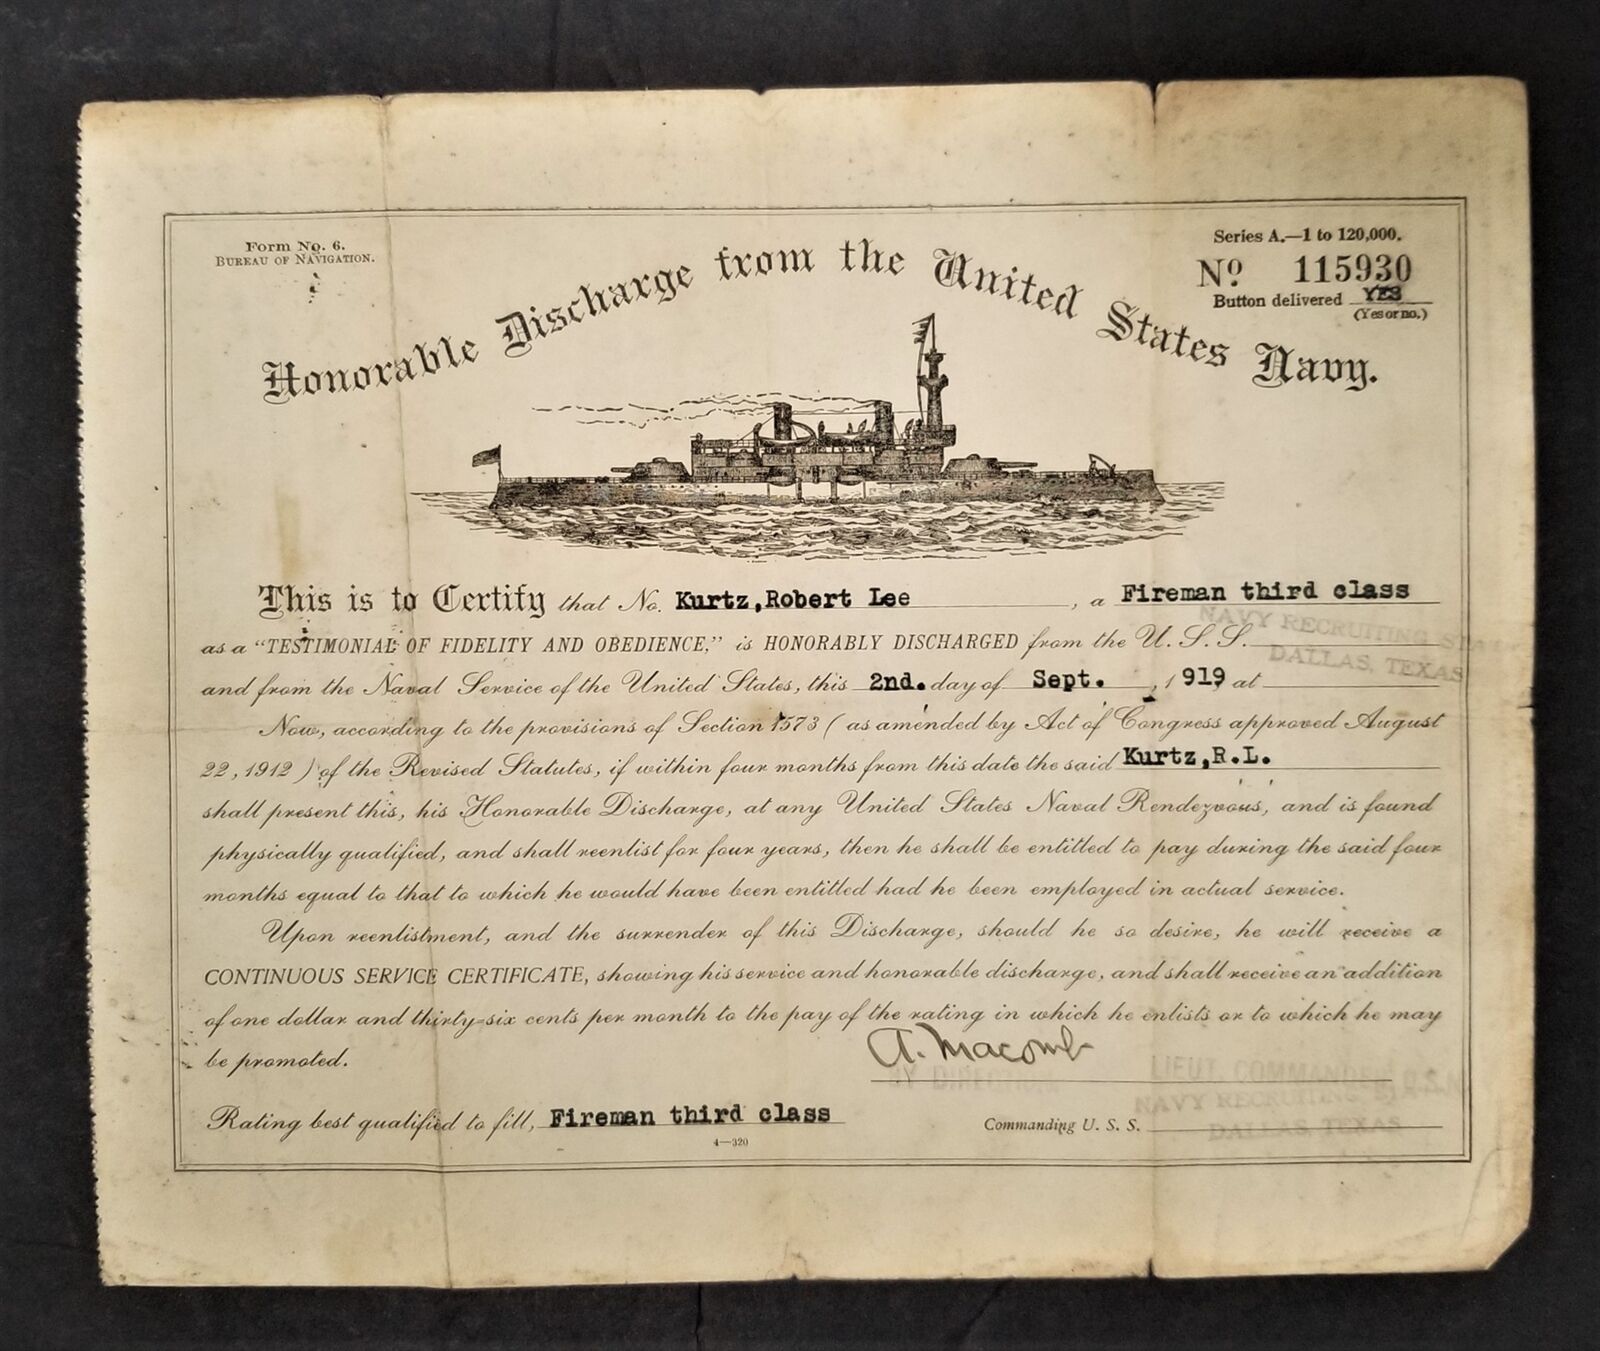 Form No. 6.
BUREAU OF NAVIGATION.
Series A.—1 to 120,000.
No 115930
Button delivered YES
(Yes or no.)
Honorable Discharge from the United States Navy.
This is to Certify that No. Kurtz,Robert Lee , a Fireman third class
NAVY RECRUITING
as a "TESTIMONIAL OF FIDELITY AND OBEDIENCE," is HONORABLY DISCHARGED from the U. S. S.
DALLAS, TEXAS
and from the Naval Service of the United States, this 2nd. day of Sept. , 1919 at
Now, according to the provisions of Section 1573 (as amended by Act of Congress approved August
22, 1912) of the Revised Statutes, if within four months from this date the said Kurtz,R.L.
shall present this, his Honorable Discharge, at any United States Naval Rendezvous, and is found
physically qualified, and shall reenlist for four years, then he shall be entitled to pay during the said four
months equal to that to which he would have been entitled had he been employed in actual service.
Upon reenlistment, and the surrender of this Discharge, should he so desire, he will receive a
CONTINUOUS SERVICE CERTIFICATE, showing his service and honorable discharge, and shall receive an addition
of one dollar and thirty=six cents per month to the pay of the rating in which he enlists or to which he may
be promoted.
A. Macomb
BY DIRECTION
LIEUT. COMMANDER U.S.N.
NAVY RECRUITING
Rating best qualified to fill, Fireman third class
Commanding U. S. S.
DALLAS, TEXAS
4—320